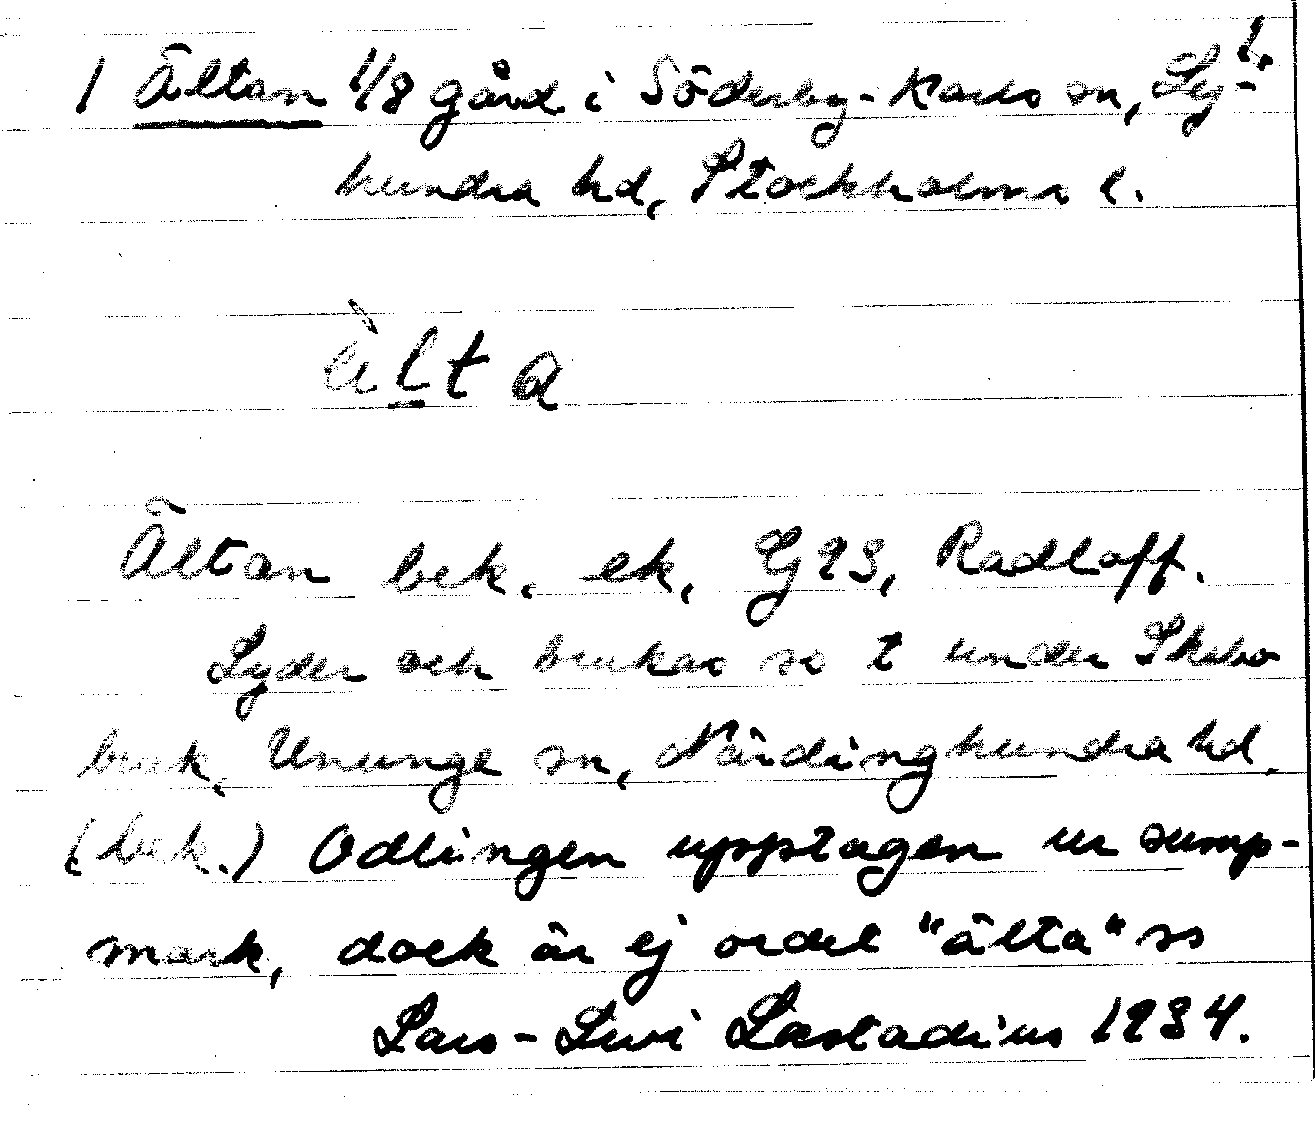 1 Ältan 1/8 gård i Söderby-Karls sn, Ly-
hundra hd, Stockholms l.
älta
Ältan bek. ek, Gj 93, Radloff.
Lyder och brukas so t under Skebo
bruk, Ununge sn, Närdinghundra hd.
(bek.) Odlingen upptagen ur sump-
mark, dock är ej ordet "älta" ss
Lars-Levi Læstadius 1934.